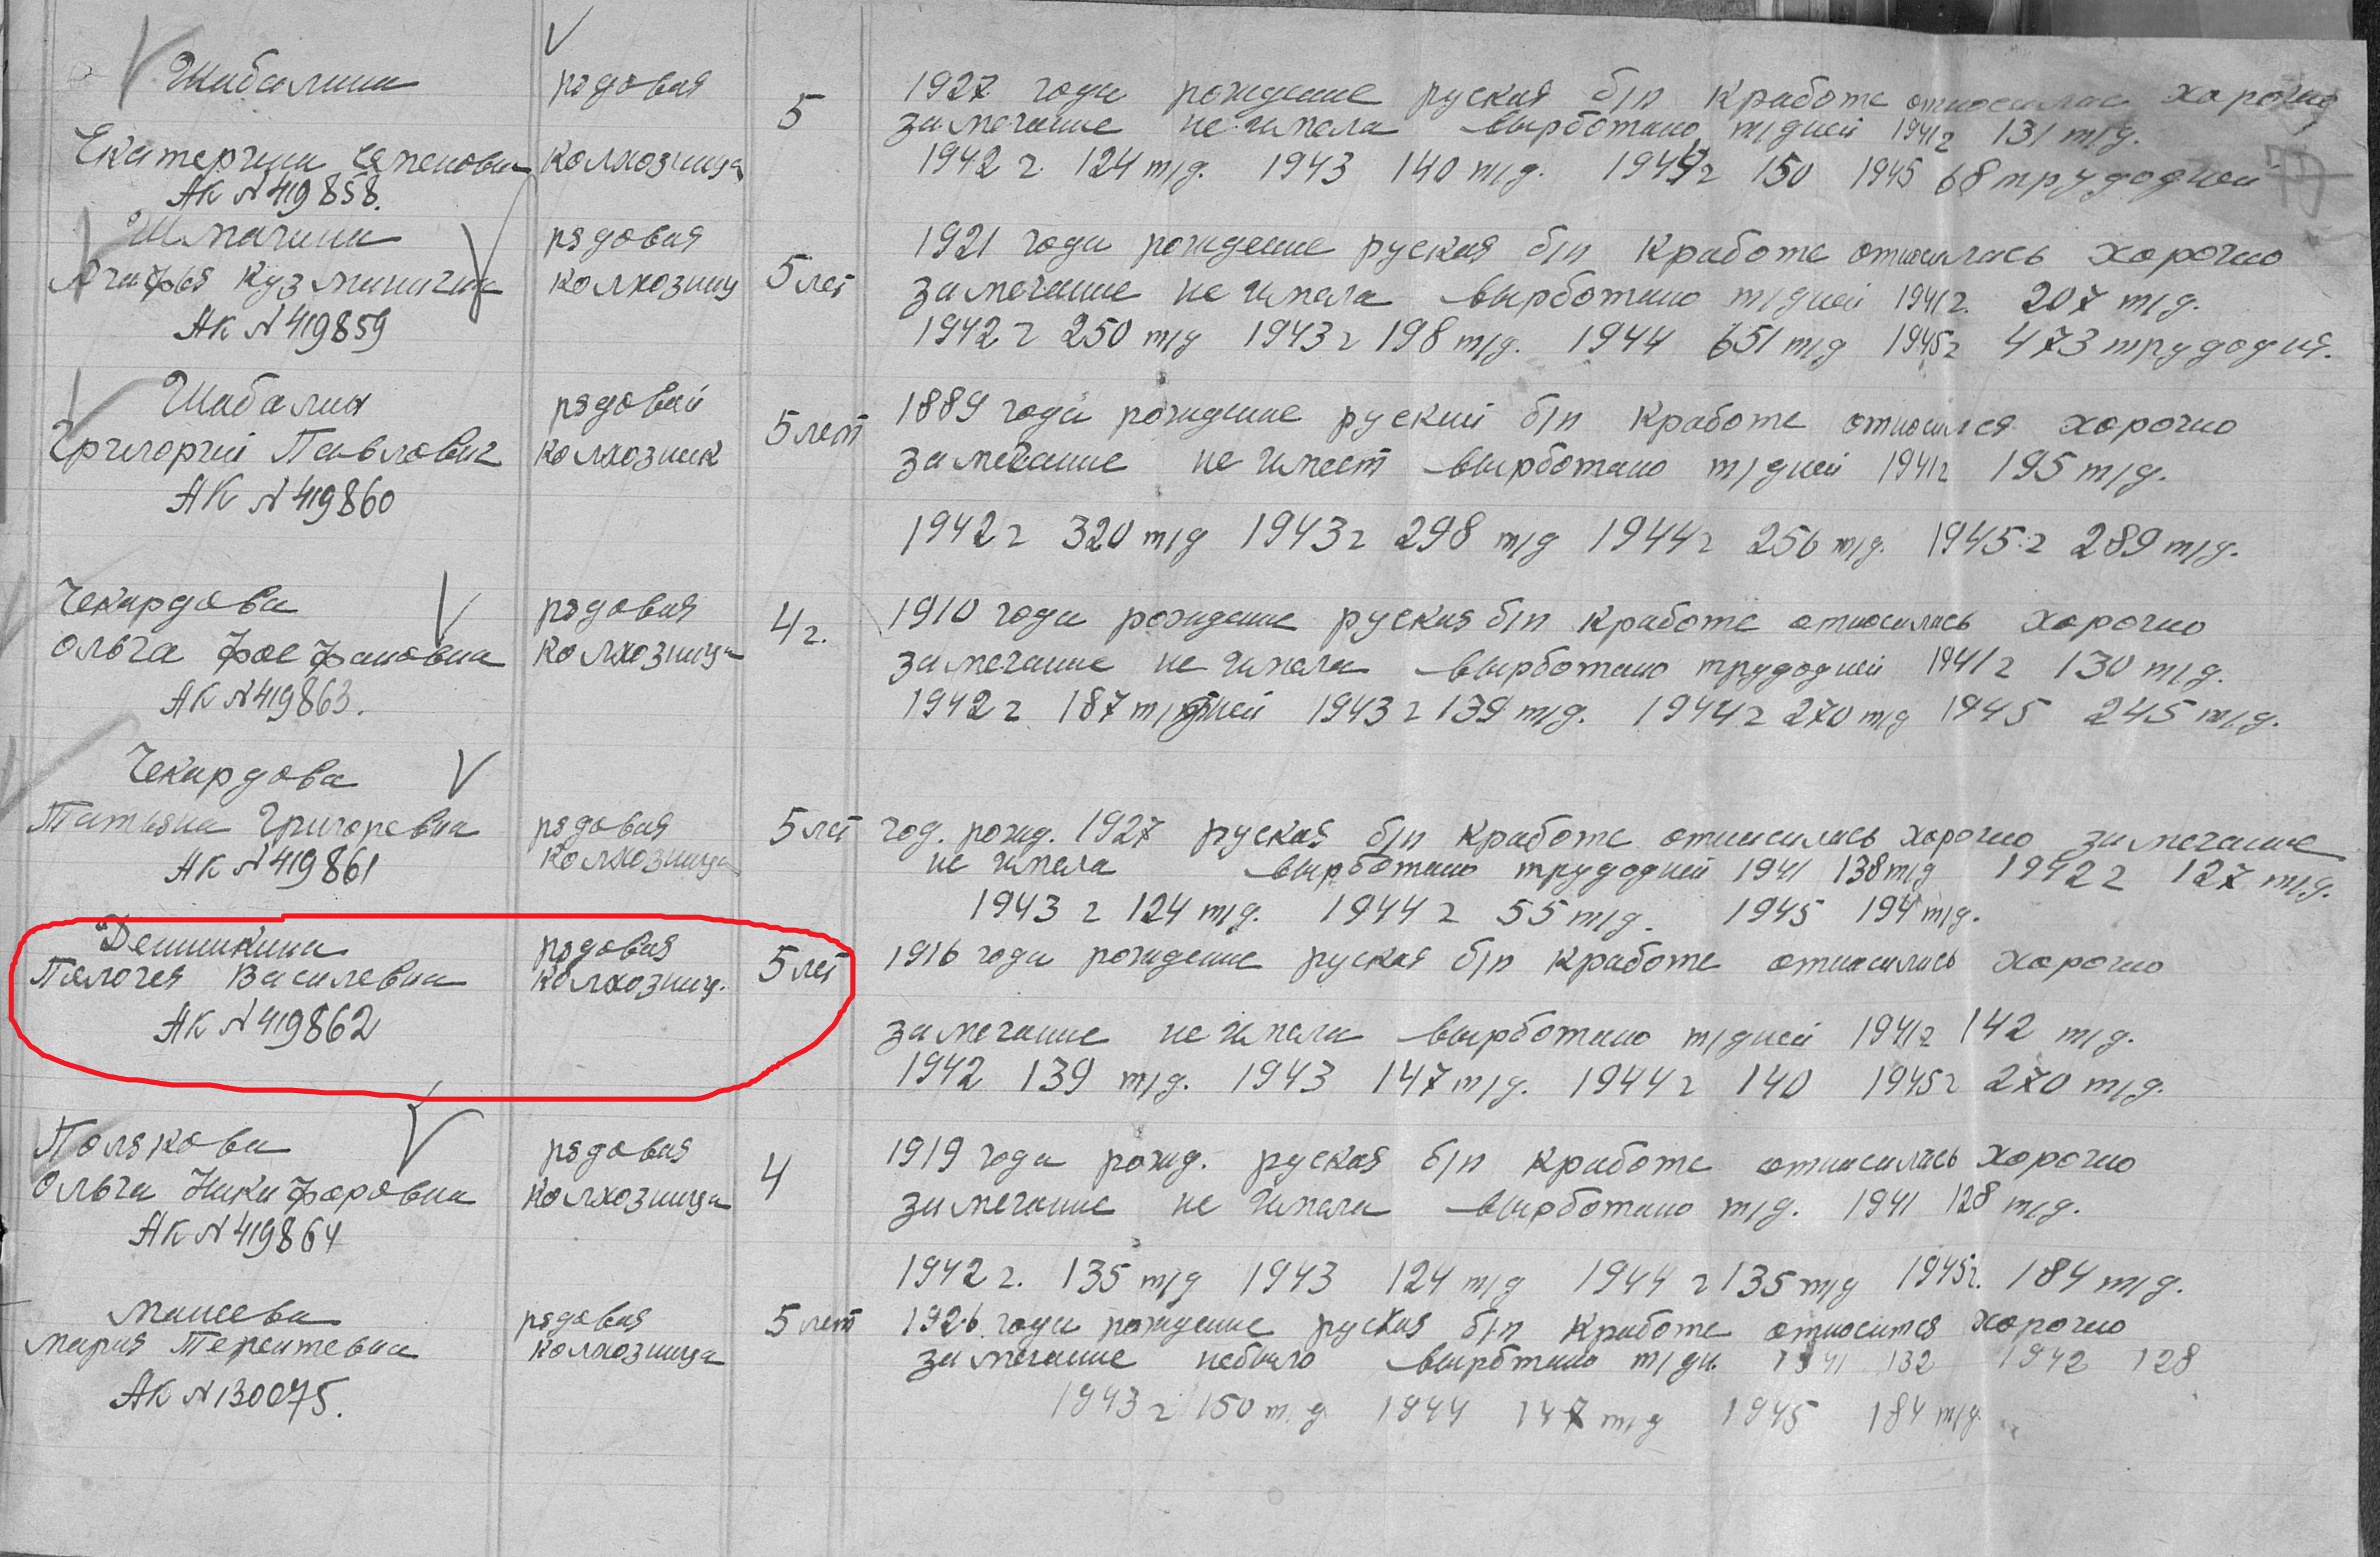 Шабалина рядовая 5 1927 года рождение руская б/п кработе относилас хорошо
замечание не имела вырботано т/дней 1941г 131 т/д.
Екатерина Семеновна колхозница 1942 г. 124 т/д. 1943 140 т/д. 1944г 150 1945 68 трудодней
АК N 419858.
Шмагина рядовая 1921 года рождение руская б/п кработе относилась хорошо
Агафья Кузминична колхозниц 5 лет замечание не имела вырботано т/дней 1941г. 207 т/д.
АК N 419859 1942 г 250 т/д 1943г 198 т/д. 1944 651 т/д 1945г 473 трудодня.
Шабалин рядовой 5 лет 1889 года рождение руский б/п кработе относился хорошо
Григорий Павлович колхозник замечание не имеет вырботано т/дней 1941г 195 т/д.
АК N 419860
1942 г 320 т/д 1943г 298 т/д 1944г 256 т/д. 1945 г 289 т/д.
Чекардова рядовая 4 г. 1910 года рождение руская б/п кработе относилась хорошо
Ольга Феефановна колхозница замечание не имела вырботано трудодней 1941 г 130 т/д.
АК N 419863. 1942 г 187 т/дней 1943 г 139 т/д. 1944 г 270 т/д 1945 245 т/д.
Чекардова
Татьяна Григоревна рядовая 5 лет год. рожд. 1927 руская б/п кработе относилась хорошо замечание
АК N 419861 колхозница не имела вырботано трудодней 1941 138 т/д 1942 г 127 т/д.
1943 г 124 т/д. 1944 г 55 т/д. 1945 194 т/д.
Демшкина рядовая 5 лет 1916 года рождение руская б/п кработе относилась хорошо
Пялогея Василевна колхозниц.
АК N 419862 замечание не имела вырботано т/дней 1941г 142 т/д.
1942 139 т/д. 1943 147 т/д. 1944 г 140 1945г 270 т/д.
Полякова рядовая 4 1919 года рожд. руская б/п кработе относилась хорошо
Ольга Никифоровна колхозница замечание не имела вырботано т/д. 1941 128 т/д.
АК N 419864
1942 г. 135 т/д 1943 124 т/д 1944 г 135 т/д 1945г. 184 т/д.
Мансева рядовая 5 лет 1926 года рождение руская б/п кработе относится хорошо
Мария Терентевна колхозница замечание небыло вырбтано т/дн. 1941 132 1942 128
АК N 130075. 1943 г 150 т.д 1944 147 т/д 1945 184 т/д.